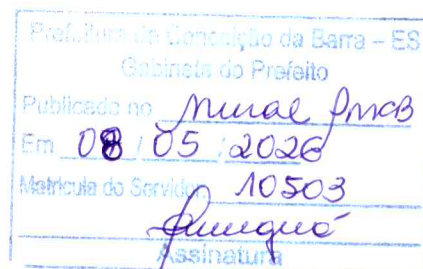 Prefeitura de Conceição da Barra – ES
Gabinete do Prefeito
Publicado no Mural PMCB
Em 08 / 05 / 2026
Matrícula do Servidor: 10503
Assinatura